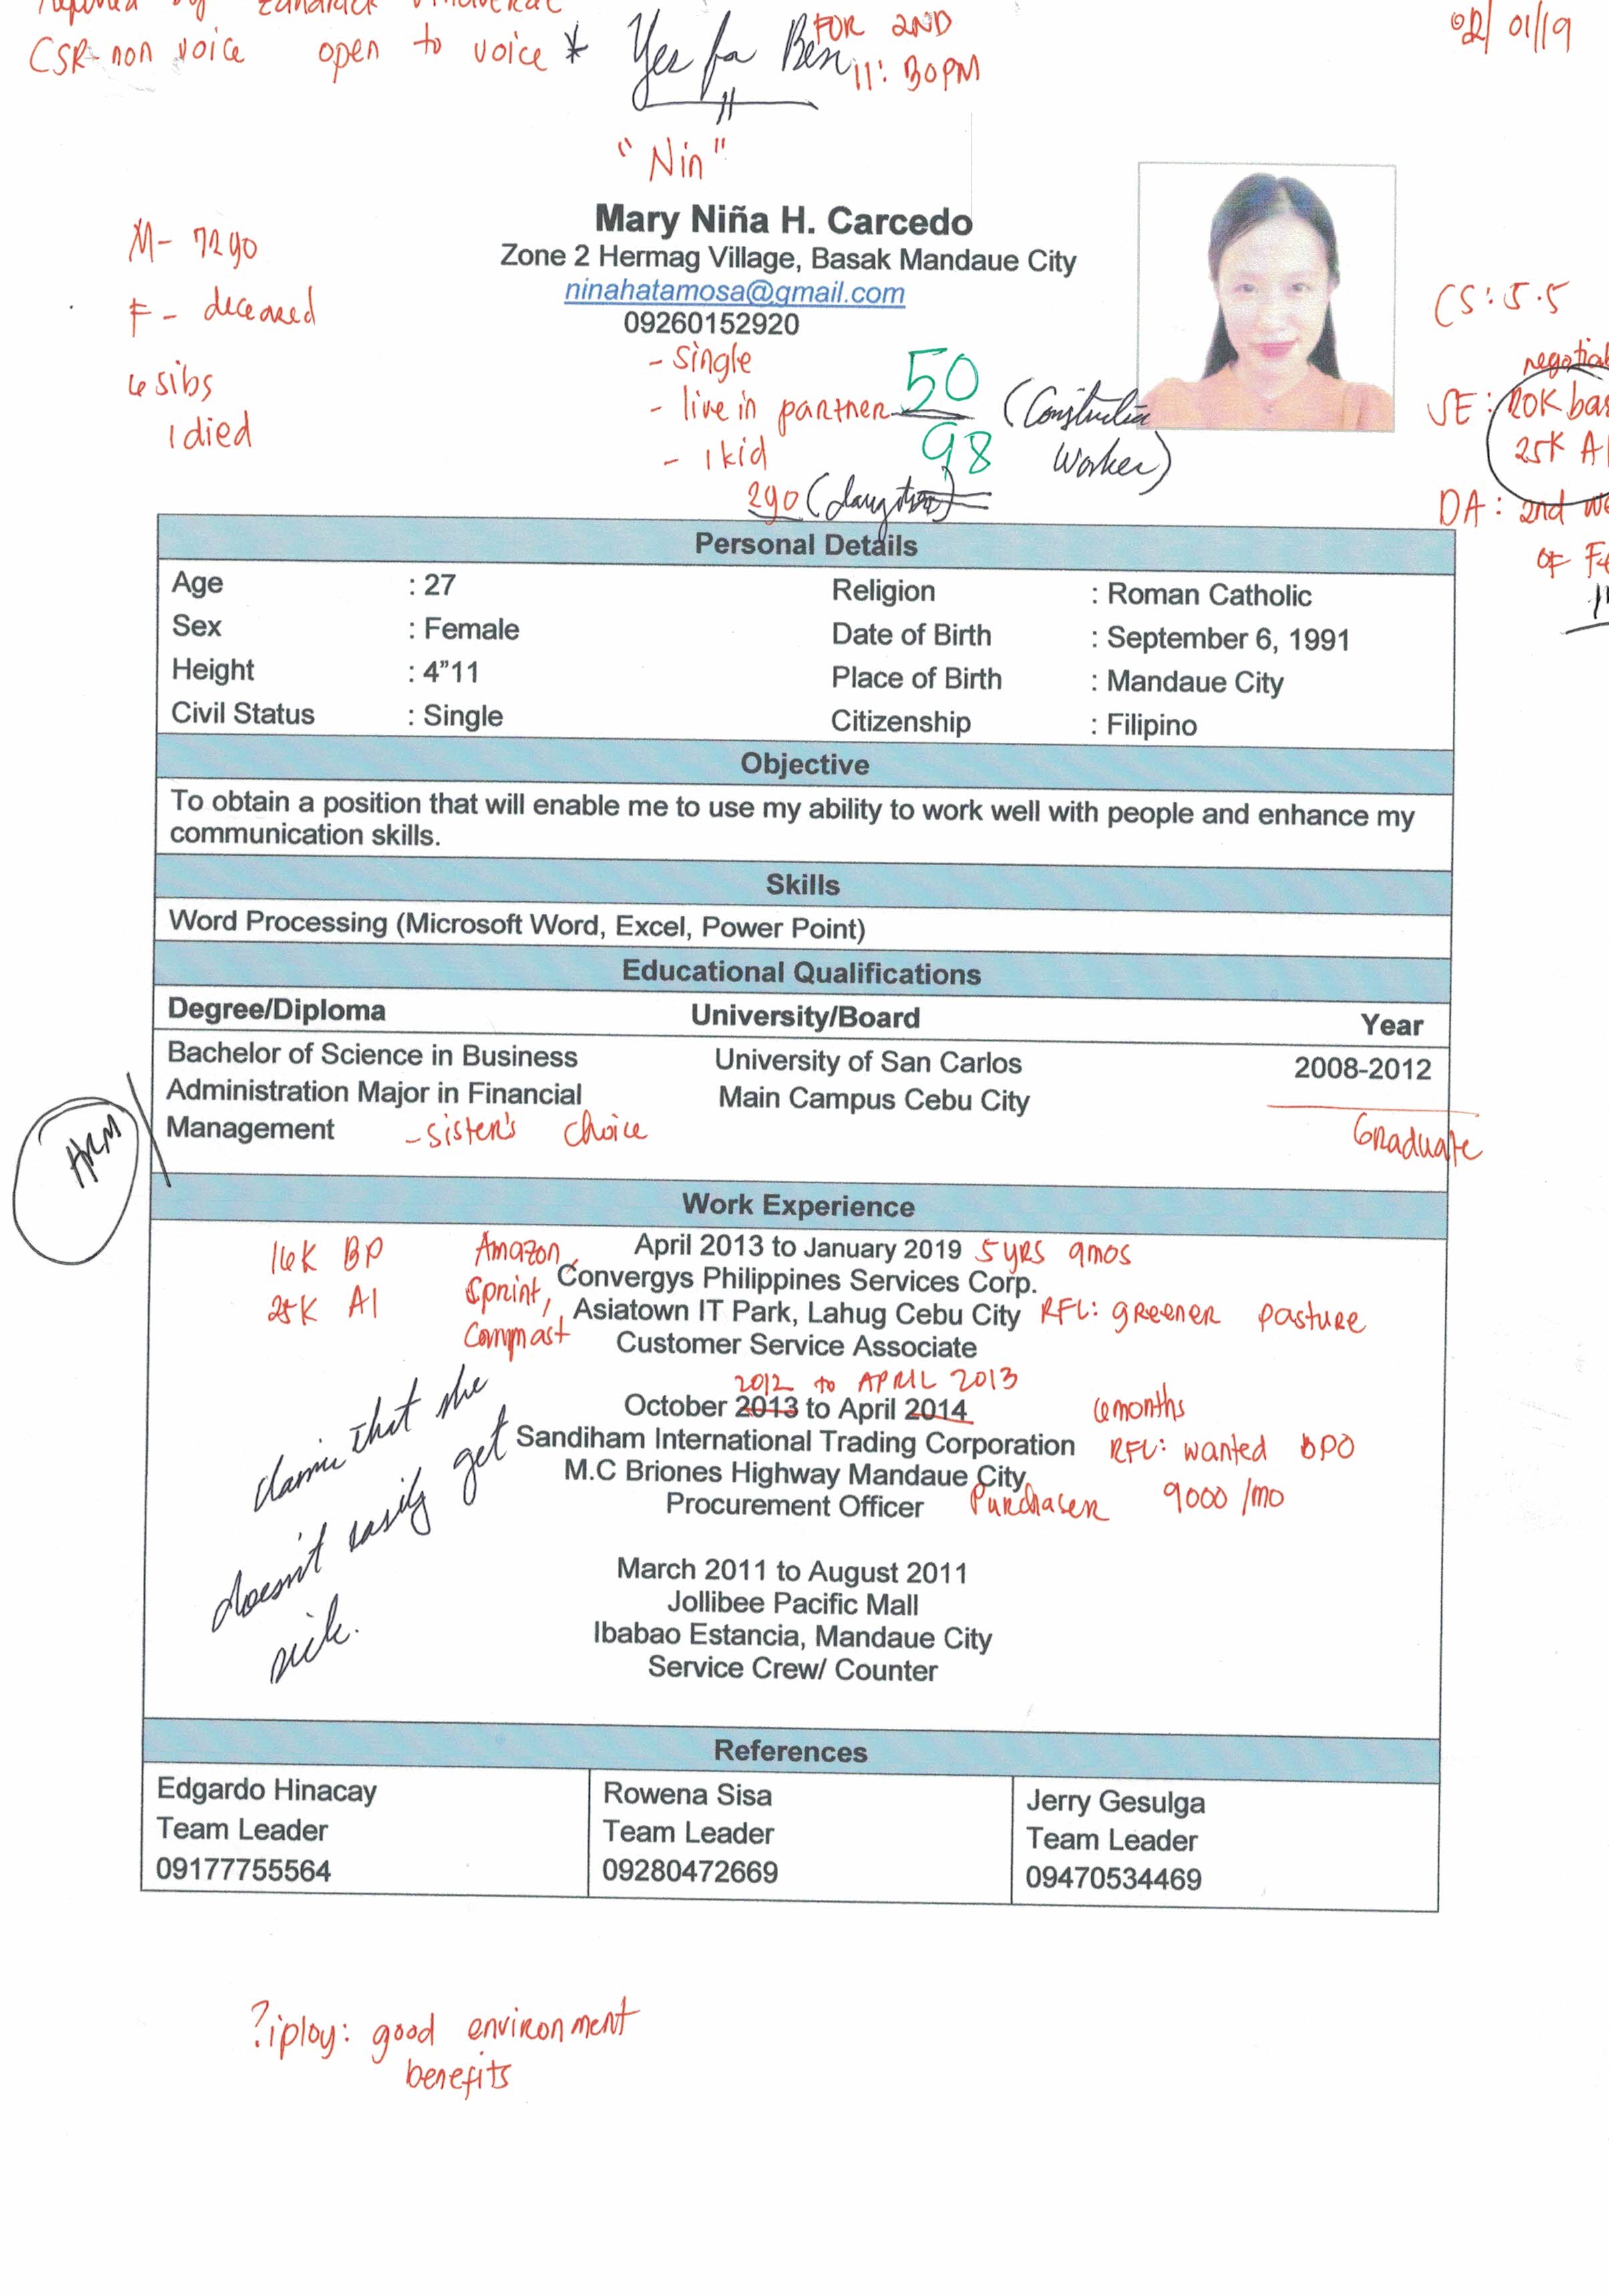 by
CSR- non voice open to voice * Yes for Ben FOR 2ND
11:30PM
02/01/19
"Nin"
Mary Niña H. Carcedo
Zone 2 Hermag Village, Basak Mandaue City
ninahatamosa@gmail.com
09260152920
M- 72yo
F- deceased
6 sibs
1 died
- single
- live in partner (Construction Worker)
- 1 kid
2yo (daughter)
50
98
CS: 5.5
SE: 20K
25K
DA: 2nd
OF
Personal Details
Age : 27 Religion : Roman Catholic
Sex : Female Date of Birth : September 6, 1991
Height : 4”11 Place of Birth : Mandaue City
Civil Status : Single Citizenship : Filipino
Objective
To obtain a position that will enable me to use my ability to work well with people and enhance my
communication skills.
Skills
Word Processing (Microsoft Word, Excel, Power Point)
Educational Qualifications
Degree/Diploma University/Board Year
Bachelor of Science in Business University of San Carlos 2008-2012
Administration Major in Financial Main Campus Cebu City
Management - sister's choice Graduate
HRM
Work Experience
16K BP Amazon, April 2013 to January 2019 5 yrs 9mos
Sprint, Convergys Philippines Services Corp.
25K AI Asiatown IT Park, Lahug Cebu City RFL: greener pasture
Commast Customer Service Associate
2012 to APRIL 2013
October 2013 to April 2014 6 months
Sandiham International Trading Corporation RFL: wanted BPO
M.C Briones Highway Mandaue City
Procurement Officer Purchaser 9000 /mo
that she
doesn't easily get
sick.
March 2011 to August 2011
Jollibee Pacific Mall
Ibabao Estancia, Mandaue City
Service Crew/ Counter
References
Edgardo Hinacay Rowena Sisa Jerry Gesulga
Team Leader Team Leader Team Leader
09177755564 09280472669 09470534469
?iploy: good environment
benefits